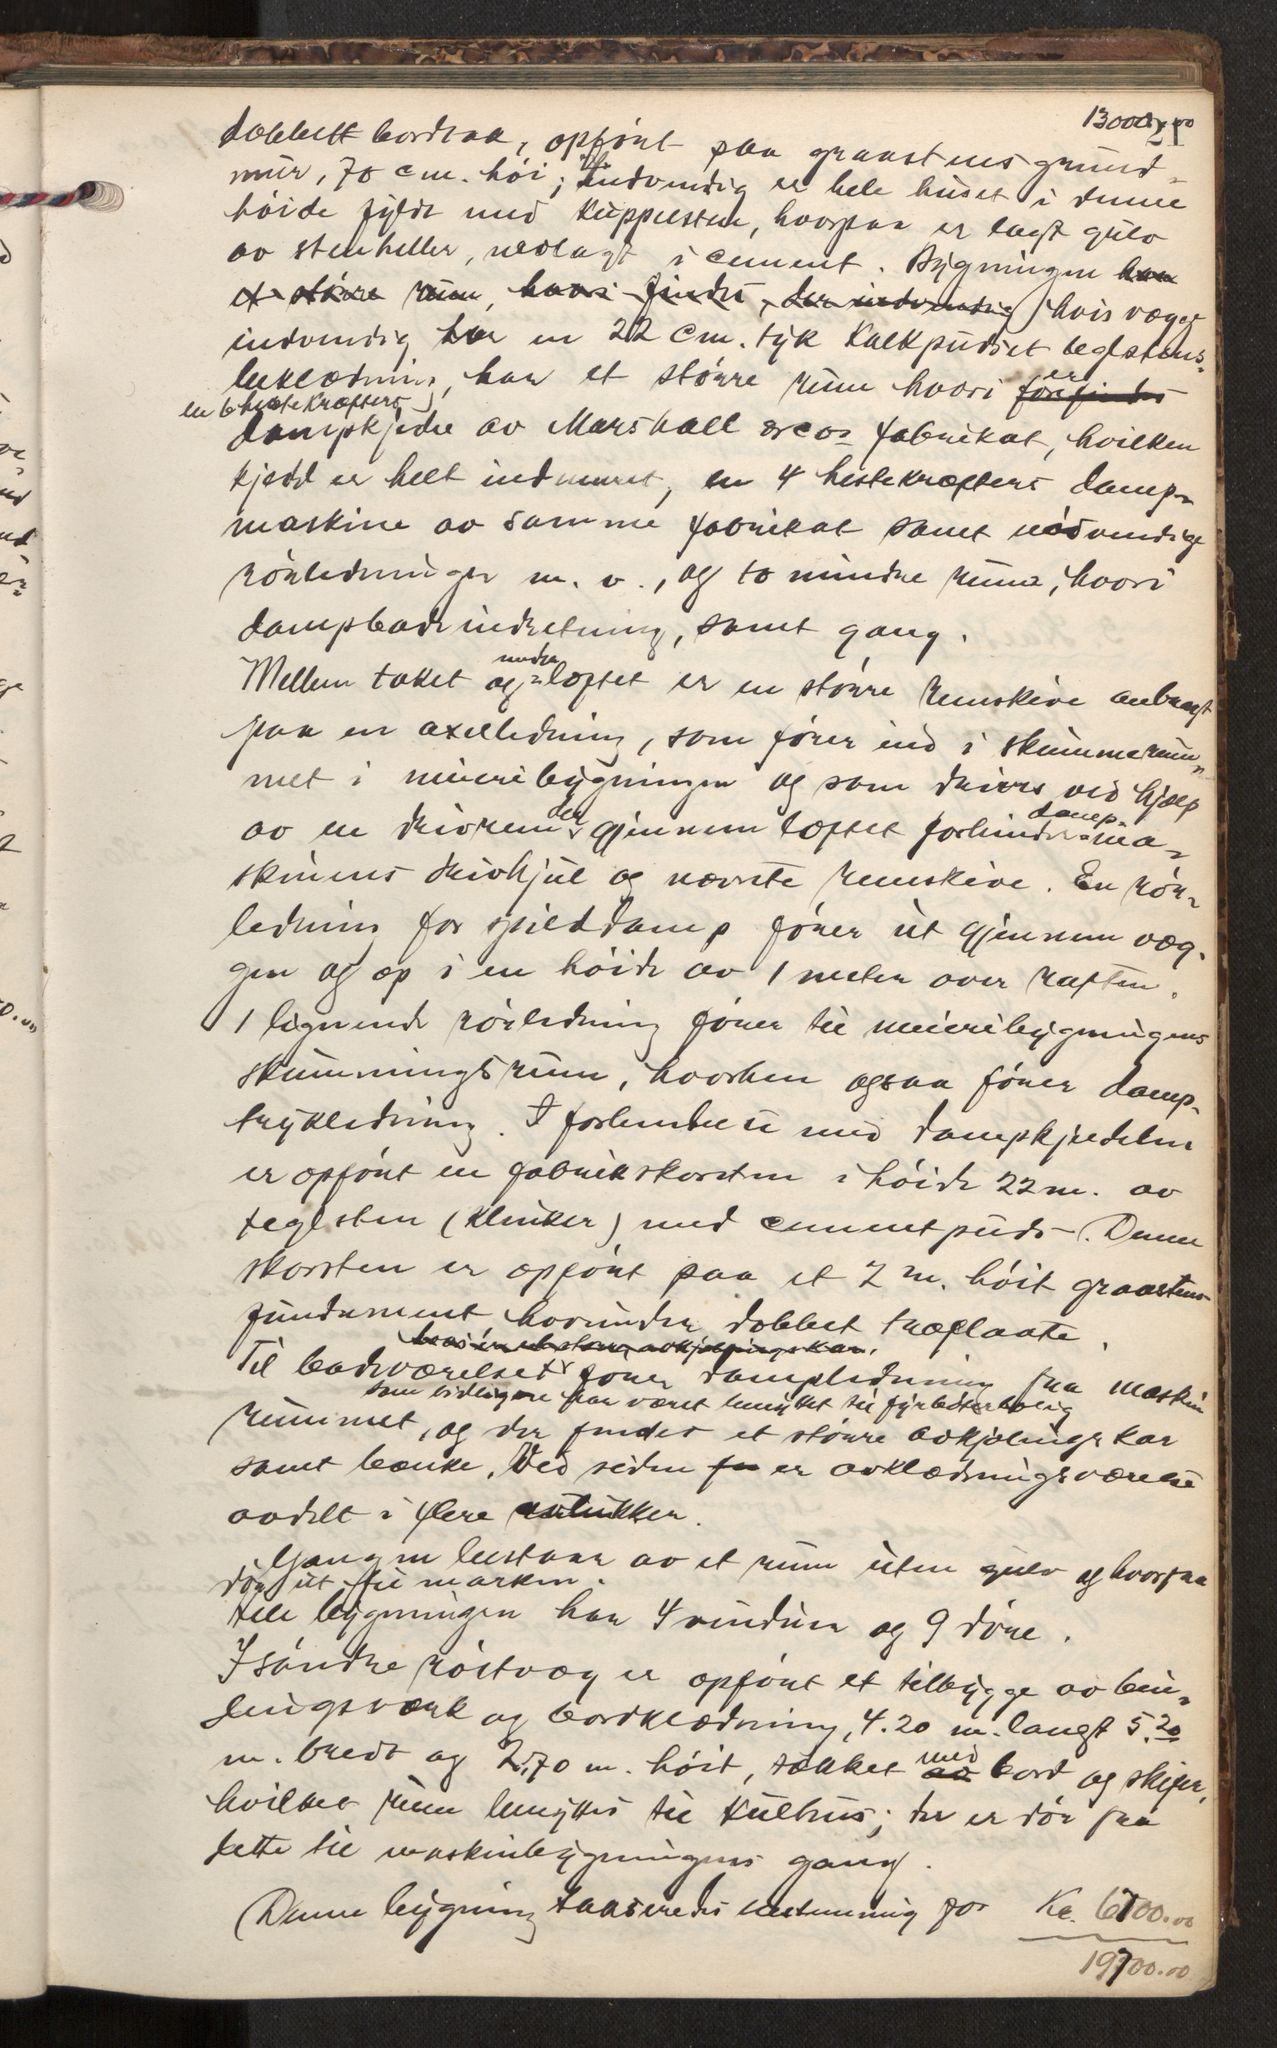 13000.00
21
dobbelt bordtak, opført paa graastensgrund-
mur, 70 cm. høi; indvendig er hele huset i denne
høide fyldt med kuppelsten, hvorpaa er lagt gulv
av stenheller, nedlagt i cement. Bygningen har
et større rum, hvori findes, der indvendig hvis vægge
indvendig har en 22 cm. tyk kalkpudset teglstens-
beklædning, har et større rum hvori er forefindes
en 6 hestekræfters
dampkjedel av Marshall & Co's fabrikat, hvilken
kjedel er helt indmuret, en 4 hestekræfters damp-
maskine av samme fabrikat samt nødvendige
rørledninger m. v., og to mindre rum, hvori
dampbadindretning, samt gang.
Mellem taket og nedre loftet er en større remskive anbragt
paa en axelledning, som fører ind i skummerum-
met i meieribygningen og som drives ved hjælp
av en drivrem der gjennem loftet forbinder damp-ma-
skinens drivhjul og nævnte remskive. En rør-
ledning for spilddamp fører ut gjennem væg-
gen og op i en høide av 1 meter over raften.
1 lignende rørledning fører til meieribygningens
skumningsrum, hvorhen ogsaa fører damp-
trykledning. I forbindelse med dampkjedelen
er opført en fabrikskorsten i høide 22 m. av
teglsten (klinker) med cementpuds. Denne
skorsten er opført paa et 2 m. høit graastens-
fundament, hvorunder dobbelt træflaate.
hvori er et stort avkjølingskar,
Til badeværelset fører dampledning fra maskin
som tidligere har været benyttet til fyrbøterbolig
rummet, og der findes et større avkjølingskar
samt bænke. Ved siden er avklædningsværelse
avdelt i flere avlukker.
Gangen bestaar av et rum uten gulv og hvorfra
dør ut til marken.
Hele bygningen har 4 vinduer og 9 døre.
I søndre røstvæg er opført et tilbygge av bin-
dingsverk og bordklædning, 4.20 m. langt 5.20
m. bredt og 2,70 m. høit, tækket med av bord og skifer,
hvilket rum benyttes til kulhus; der er dør fra
dette til maskinbygningens gang.
Denne bygning taxeredes enstemmig for Kr. 6700.00
19700.00